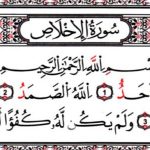 سُورَةُ الإِخْلَاصِ
ـسْمِ اللَّهِ الرَّحْمَٰنِ الرَّحِيمِ
حَدٌ 1 اللَّهُ الصَّمَدُ 2
3 وَلَمْ يَكُن لَّهُ كُفُوًا